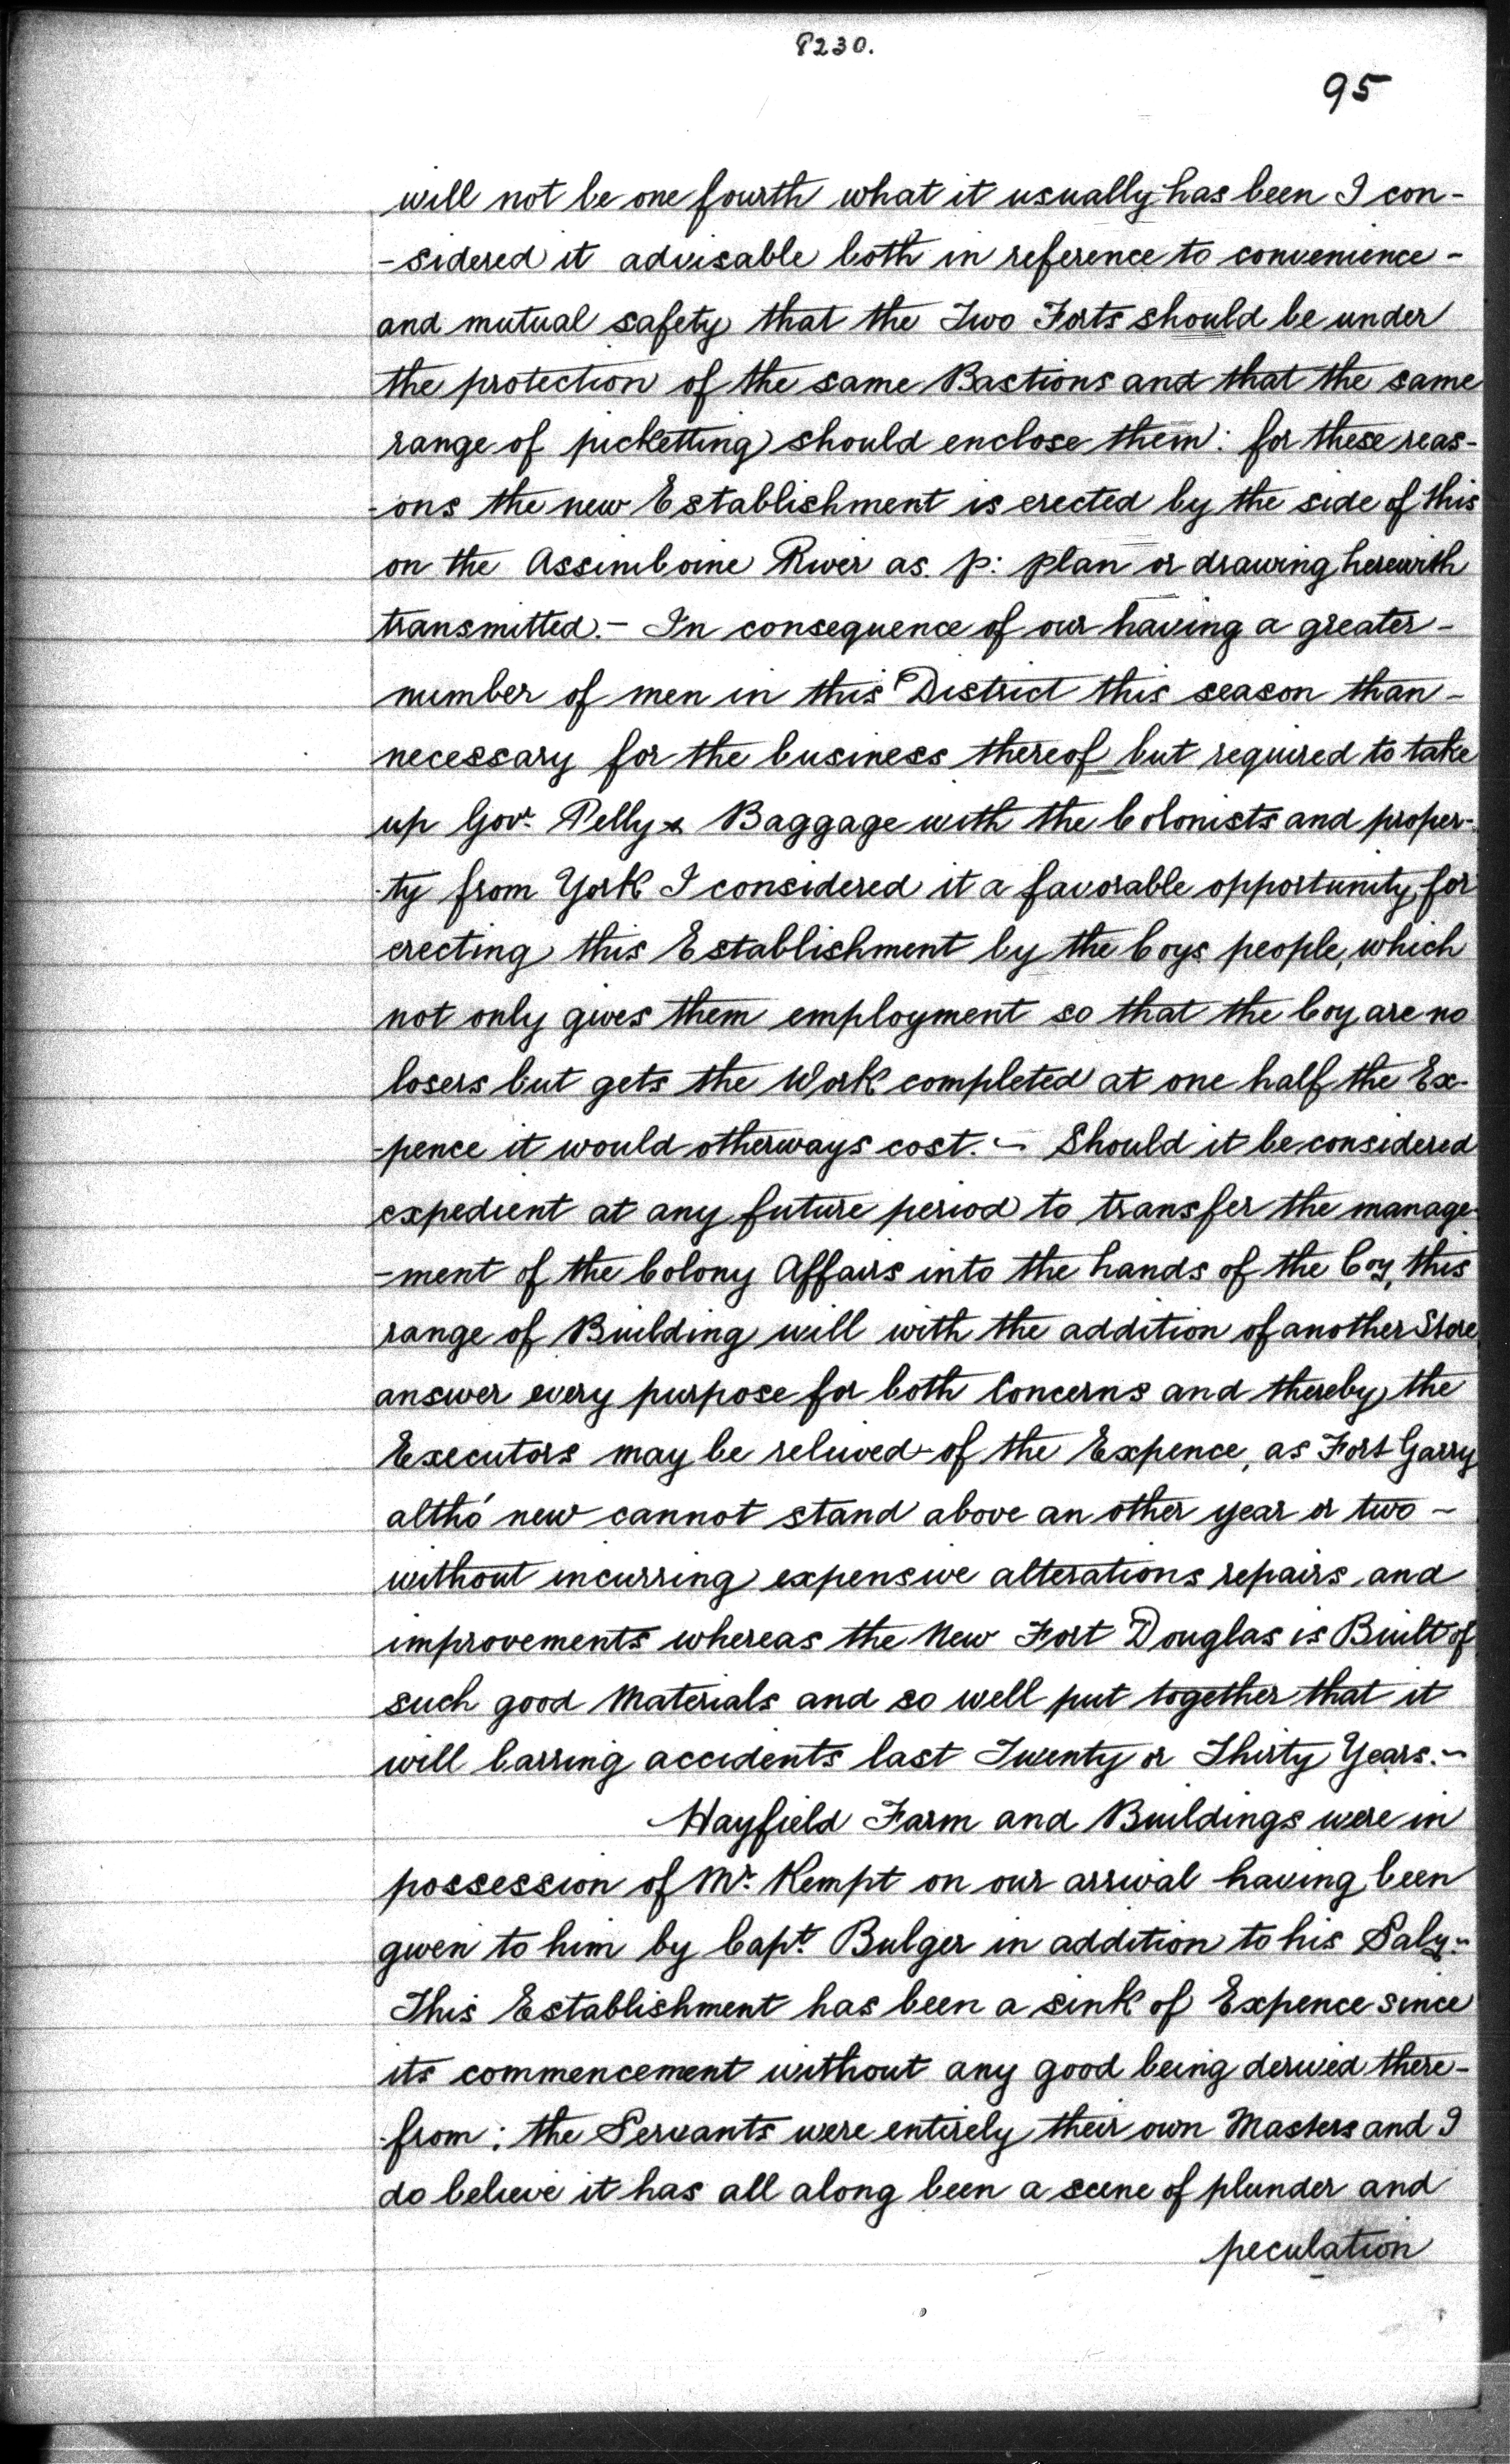 8230.
95
will not be one fourth what it usually has been I con-
-sidered it advisable both in reference to convenience -
and mutual safety that the Two Forts should be under
the protection of the same Bastions and that the same
range of picketting should enclose them: for these reas-
-ons the new Establishment is erected by the side of this
on the Assiniboine River as p: plan or drawing herewith
transmitted. - In consequence of our having a greater -
number of men in this District this season than -
necessary for the business thereof but required to take
up Govr. Pelly & Baggage with the Colonists and proper-
-ty from York I considered it a favorable opportunity for
erecting this Establishment by the Coys people, which
not only gives them employment so that the Coy are no
losers but gets the Work completed at one half the Ex-
-pence it would otherways cost. - Should it be considered
expedient at any future period to transfer the manage-
-ment of the Colony Affairs into the hands of the Coy, this
range of Building will with the addition of another Store
answer every purpose for both Concerns and thereby the
Executors may be relieved of the Expence, as Fort Garry
altho' new cannot stand above an other year or two -
without incurring expensive alterations repairs and
improvements whereas the New Fort Douglas is Built of
such good Materials and so well put together that it
will barring accidents last Twenty or Thirty Years. -
Hayfield Farm and Buildings were in
possession of Mr. Kempt on our arrival having been
given to him by Capt. Bulger in addition to his Saly. -
This Establishment has been a sink of Expence since
its commencement without any good being derived there-
-from: the Servants were entirely their own Masters and I
do believe it has all along been a scene of plunder and
peculation